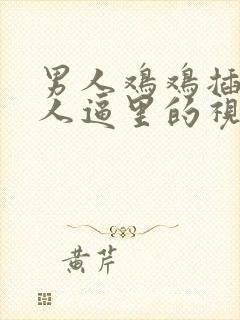 男人鸡鸡插
人逼里的視
黄芹